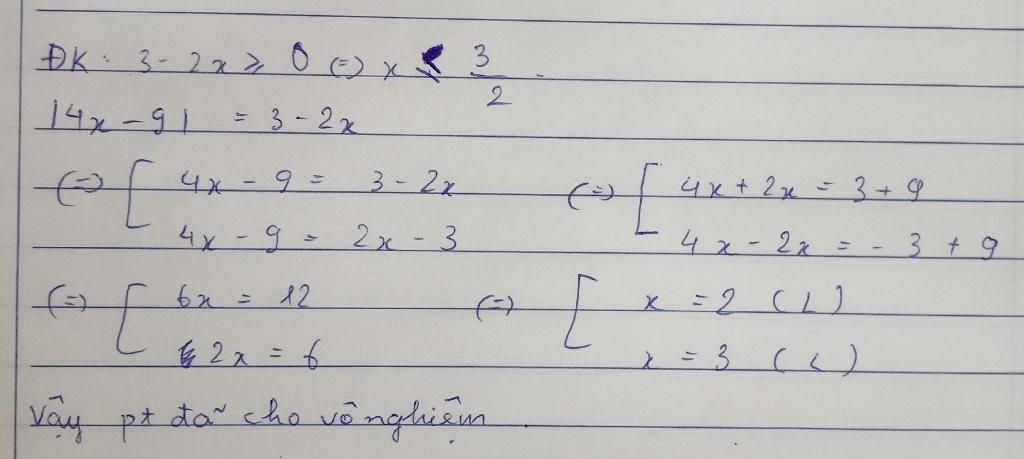 ĐK: 3 - 2x ⩾ 0 (=) x ⩽ 3/2.
|4x - 9| = 3 - 2x
(=) [ 4x - 9 = 3 - 2x (=) [ 4x + 2x = 3 + 9
4x - 9 = 2x - 3 4x - 2x = - 3 + 9
(=) [ 6x = 12 (=) [ x = 2 (L)
2x = 6 x = 3 (L)
Vậy pt đã cho vô nghiệm.